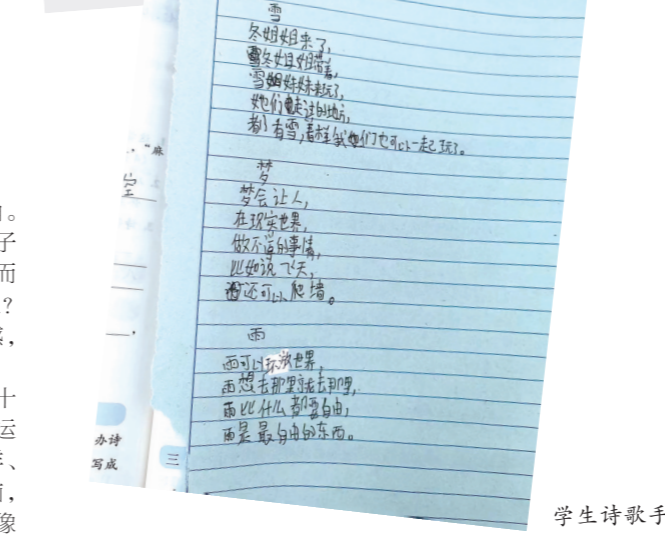 雪
冬姐姐来了,
雪冬姐姐带着,
雪姐妹妹来玩了,
她们走过的地方,
都有雪,着样我她们也可以一起玩了。
梦
梦会让人,
在现实世界,
做不道的事情,
比如说飞天,
还可以爬墙。
雨
雨可以环游世界,
雨想去那里就去那里,
雨比什么都要自由,
雨是最自由的东西。
“麻
空
办诗
写成
三
。
子
而
?
,
十
运
、
,
像
学生诗歌手